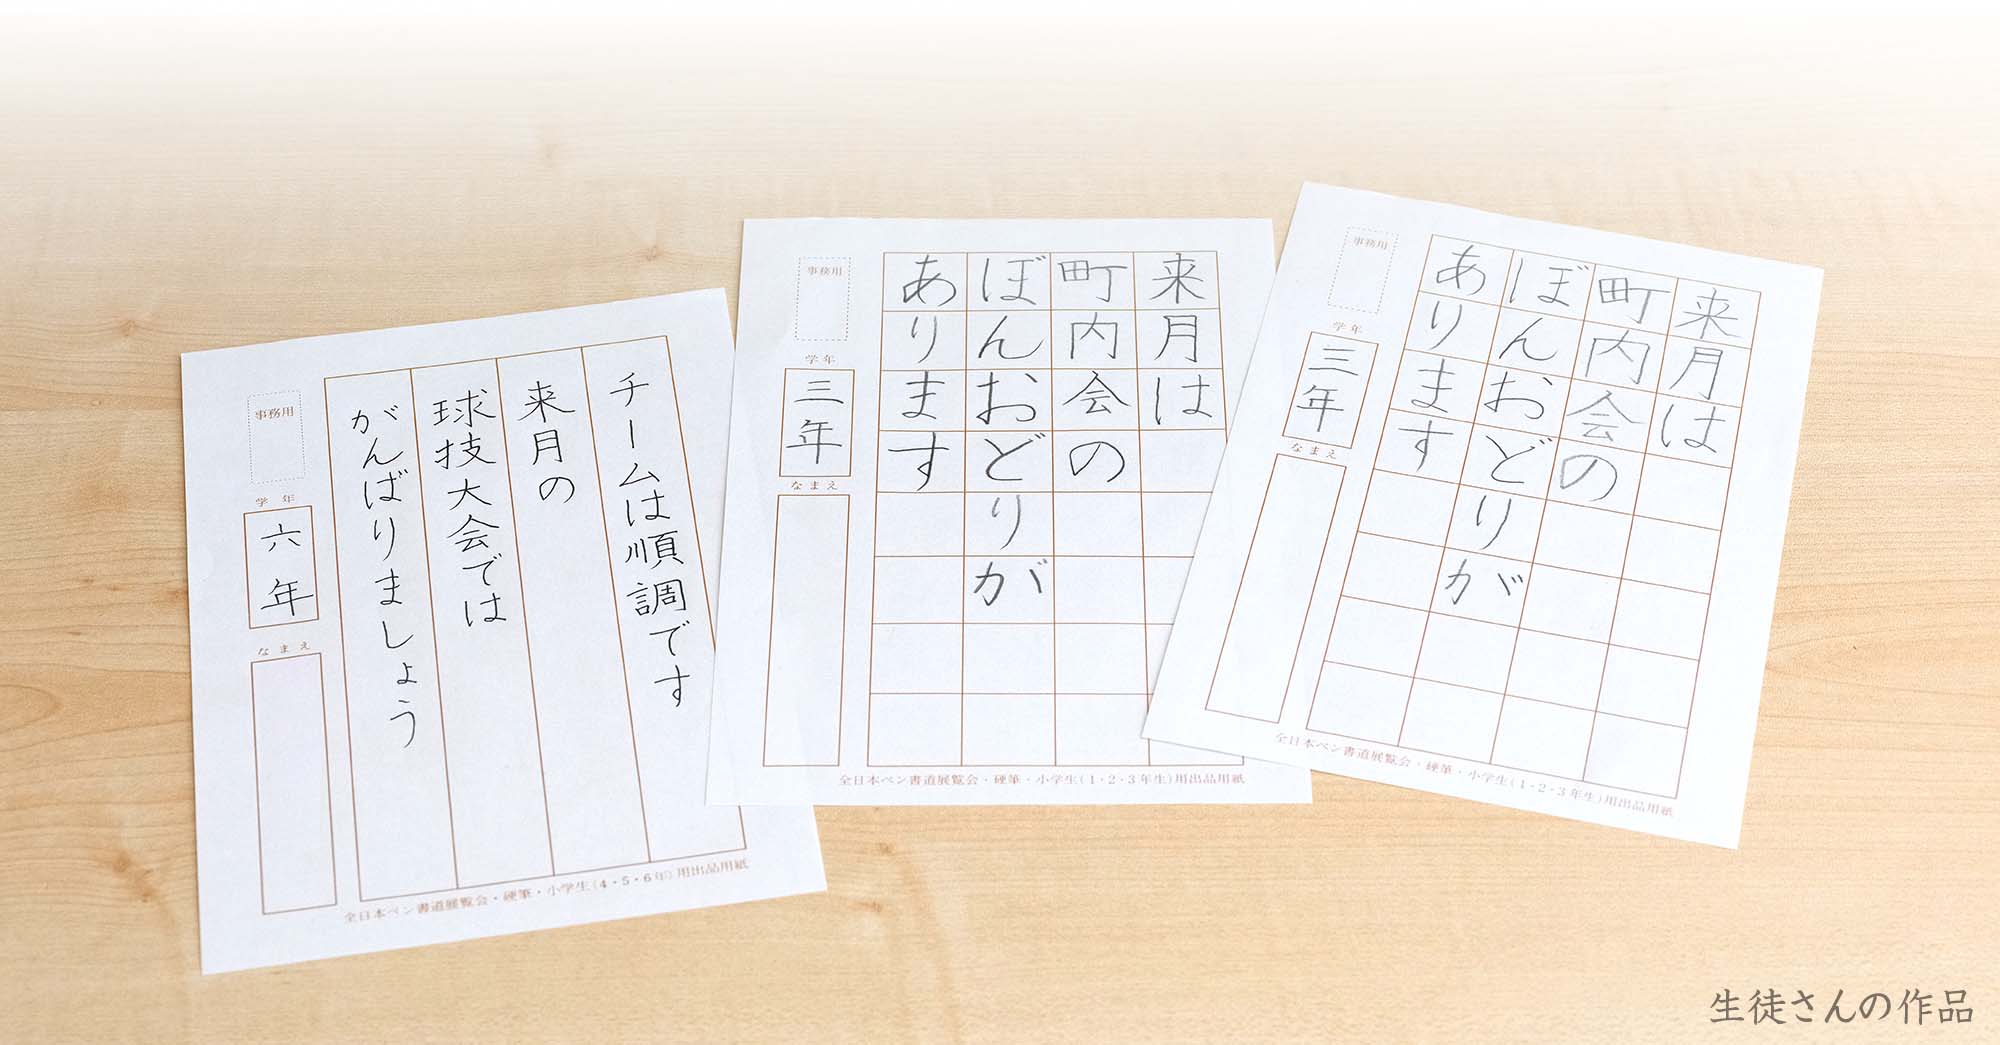 チームは順調です
来月の
球技大会では
がんばりましょう
事務用
学年
六年
なまえ
全日本ペン書道展覧会・硬筆・小学生(4・5・6年)用出品用紙
来月は
町内会の
ぼんおどりが
あります
事務用
学年
三年
なまえ
全日本ペン書道展覧会・硬筆・小学生(1・2・3年生)用出品用紙
来月は
町内会の
ぼんおどりが
あります
事務用
学年
三年
なまえ
全日本ペン書道展覧会・硬筆・小学生(1・2・3年生)用出品用紙
生徒さんの作品